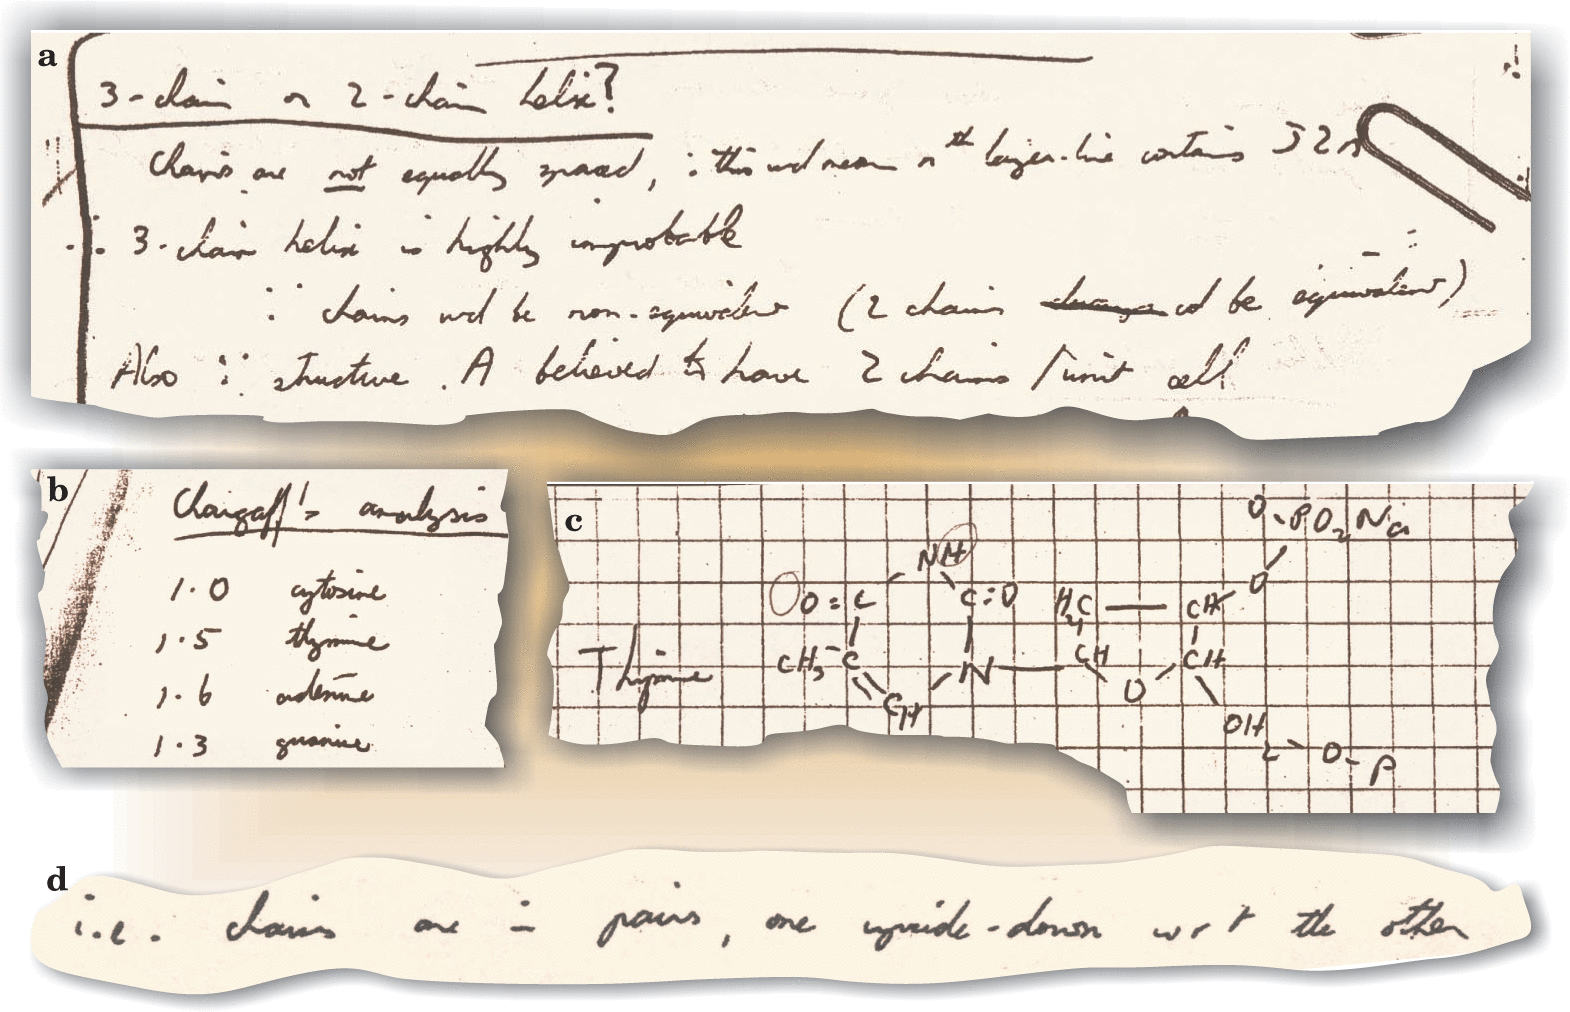 a
3-chain or 2-chain helix?
Chains are not equally spaced, ∵ this wd mean nth layer-line contains J2n
∴ 3-chain helix is highly improbable
∵ chains wd be non-equivalent (2 chains cd be equivalent)
Also ∵ structure A believed to have 2 chains / unit cell
b
Chargaff's analysis
1.0 cytosine
1.5 thymine
1.6 adenine
1.3 guanine
c
O-PO2Na
NH
O=C C=O H2C CH O
Thymine CH3-C N CH CH
CH O
OH
2-O-P
d
i.e. chains are in pairs, one upside-down wrt the other